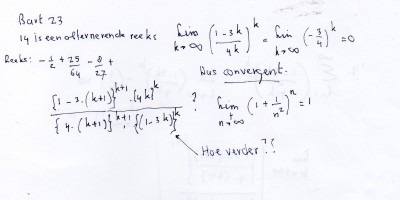 Bart 23
14 is een alternerende reeks lim k→∞ ((1-3k)/(4k))^k = lim k→∞ (-3/4)^k = 0
Reeks: -1/2 + 25/64 - 8/27 +
Dus convergent.
{1-3.(k+1)}^(k+1) . {4k}^k / {4.(k+1)}^(k+1) . {(1-3k)}^k ? lim n→∞ (1 + 1/n²)^n = 1
Hoe verder??